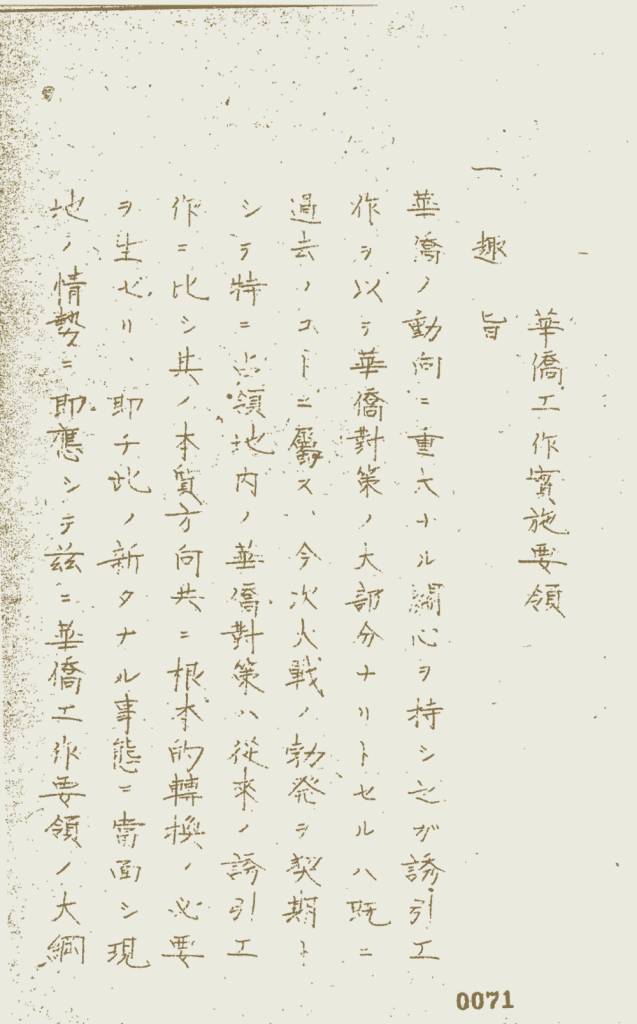 華僑工作實施要領
一
趣旨
華僑ノ動向ニ重大ナル關心ヲ持シ之ガ誘引工
作ヲ以テ華僑對策ノ大部分ナリトセルハ既ニ
過去ノコトニ屬ス、今次大戰ノ勃発ヲ契期ト
シテ特ニ占領地内ノ華僑對策ハ從來ノ誘引工
作ニ比シ其ノ本質方向共ニ根本的轉換ノ必要
ヲ生ゼリ、即チ此ノ新タナル事態ニ當面シ現
地ノ情勢ニ即應シテ茲ニ華僑工作要領ノ大綱
0071